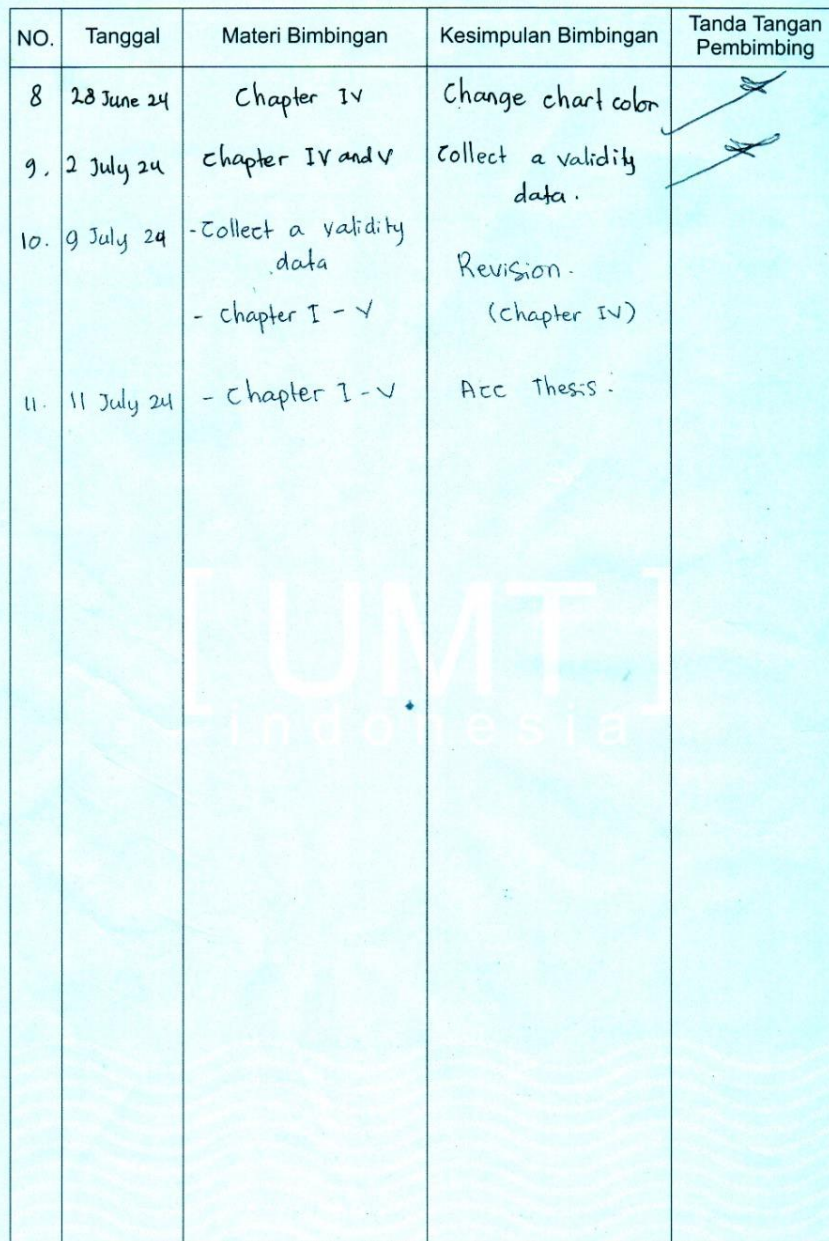 NO. Tanggal Materi Bimbingan Kesimpulan Bimbingan Tanda Tangan
Pembimbing
8 28 June 24 Chapter IV Change chart color
9. 2 July 24 Chapter IV and V Collect a validity
data.
10. 9 July 24 - Collect a validity
data Revision.
- Chapter I - V (Chapter IV)
11. 11 July 24 - Chapter I - V Acc Thesis.
[ UMT ]
indonesia